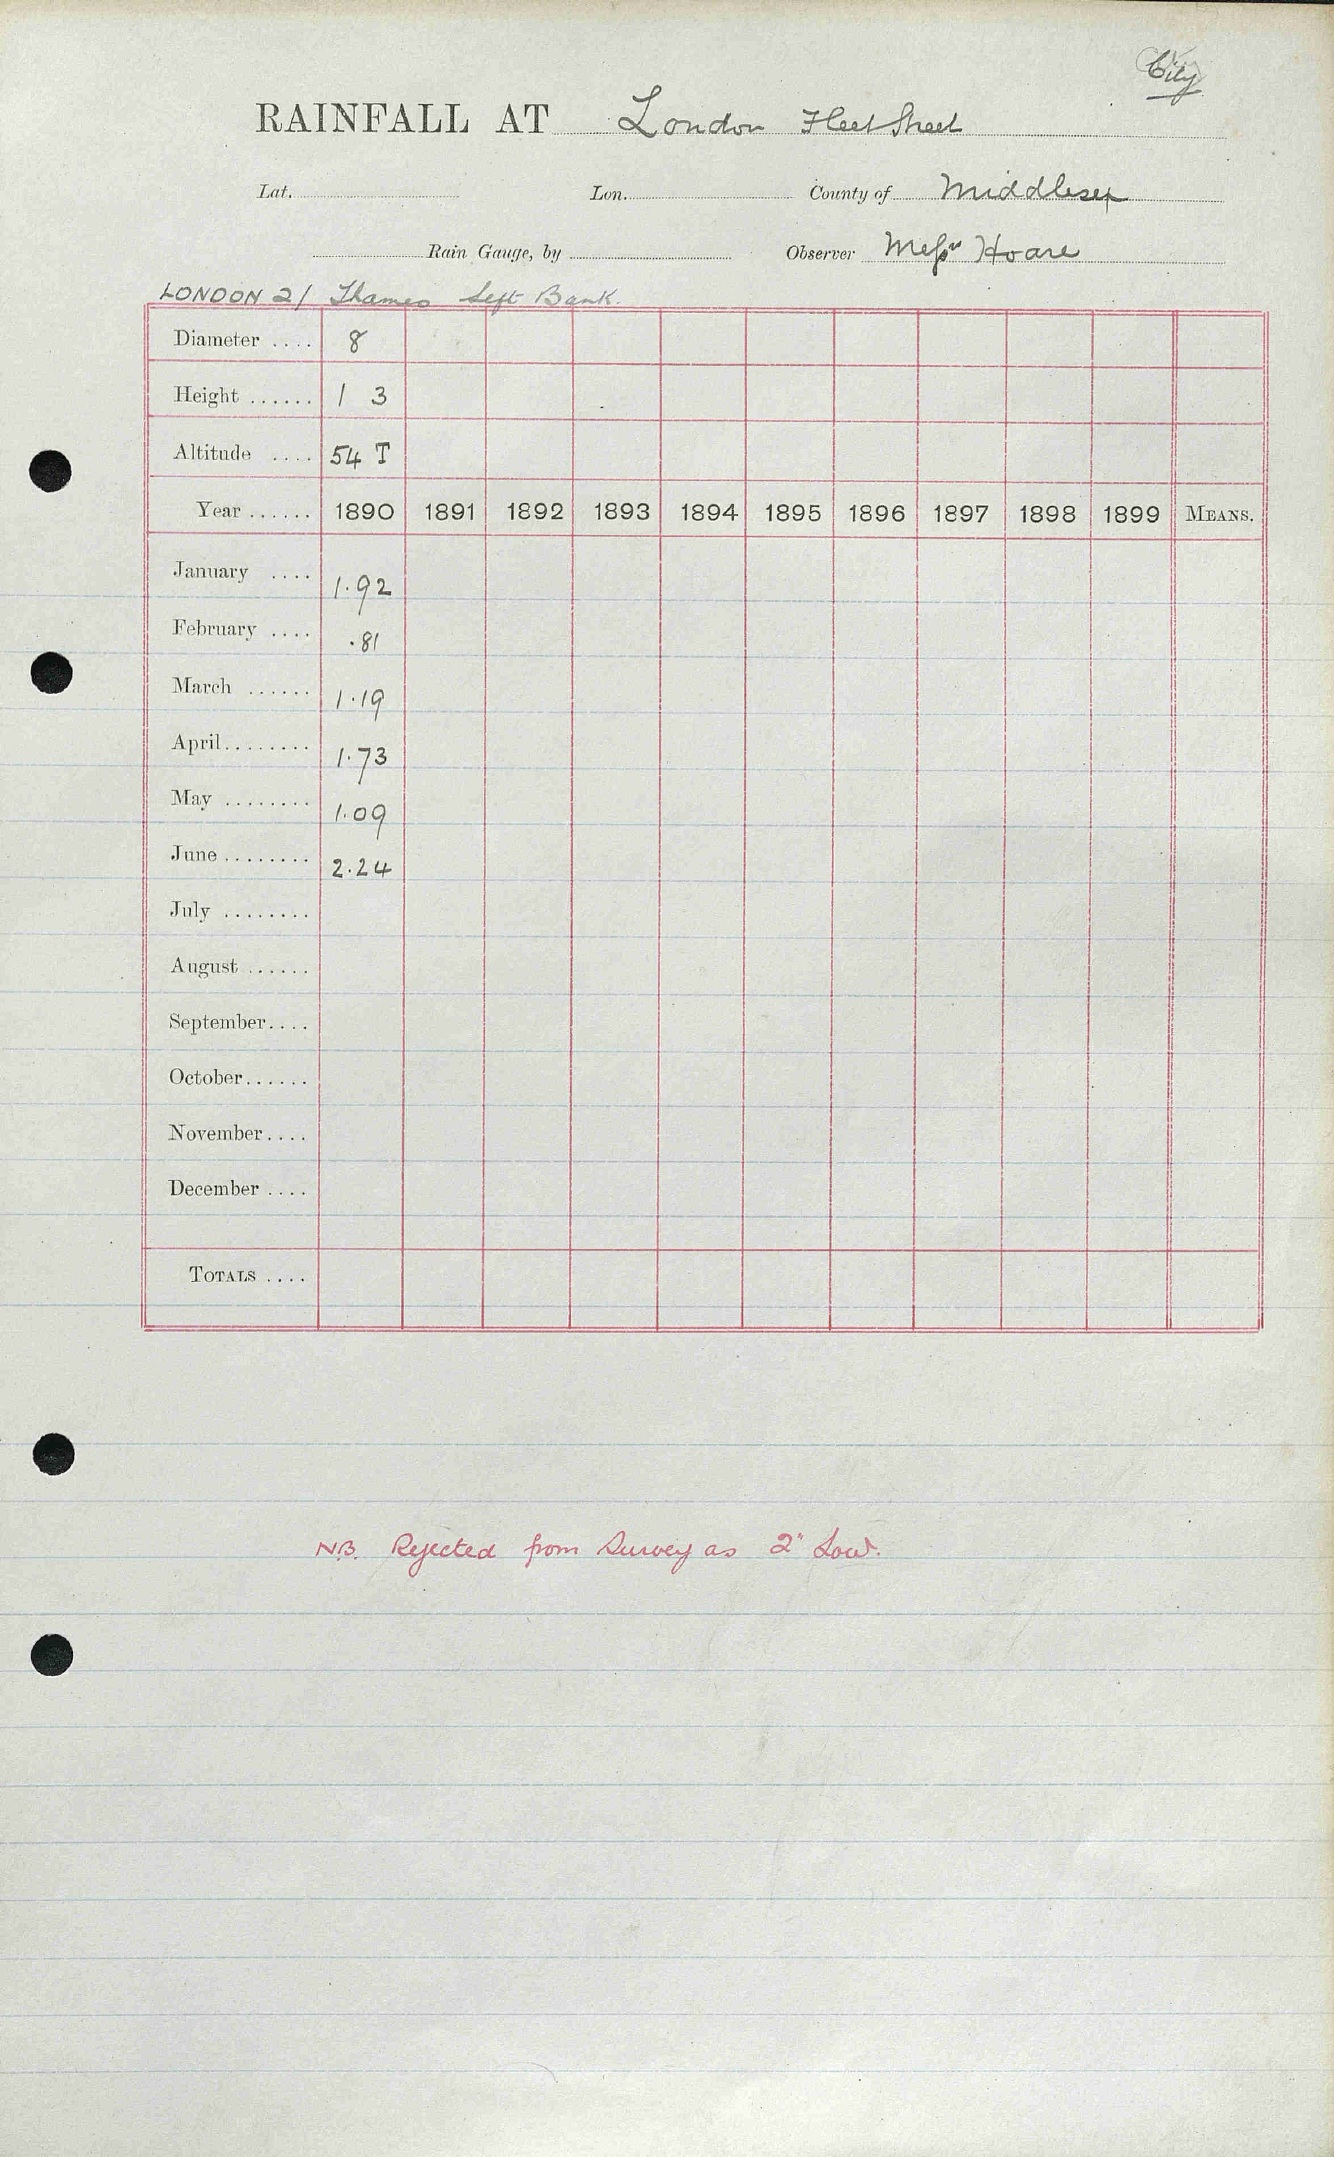 City
RAINFALL AT London Fleet Street
Lat. Lon. County of Middlesex
Rain Gauge, by Observer Messrs Hoare
LONDON 2/ Thames Left Bank.
Diameter .... 8
Height ...... 1 3
Altitude .... 54 T
Year ...... 1890 1891 1892 1893 1894 1895 1896 1897 1898 1899 MEANS.
January .... 1.92
February .... .81
March ...... 1.19
April ........ 1.73
May ........ 1.09
June ........ 2.24
July ........
August ......
September ....
October ......
November ....
December ....
TOTALS ....
N.B. Rejected from Survey as 2" Low.